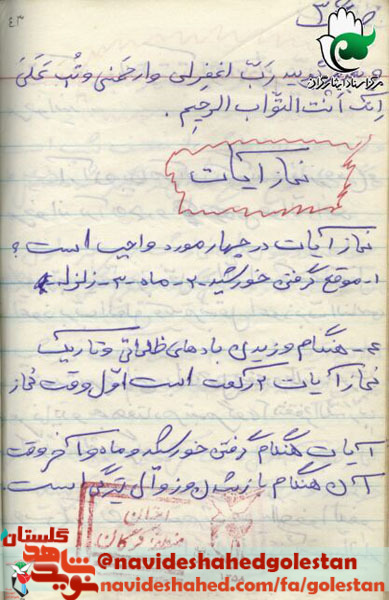 ٤٣
رَبِّ اغفِرلی وارحَمنی وتُب عَلَیَّ
اِنَّکَ اَنتَ التَّواب الرحِیم.
نماز آیات
نماز آیات در چهار مورد واجب است؟
۱- موقع گرفتن خورشید ۲- ماه ۳- زلزله
۴- هنگام وزیدن بادهای ظلمانی و تاریک
نماز آیات ۲ رکعت است اوّل وقت نماز
آیات هنگام گرفتن خورشید و ماه و آخر وقت
آن هنگام باز شدن و زوال تیرگی است.
مرکز اسناد ایثارگران
گلستان
نوید شاهد
@navideshahedgolestan
navideshahed.com/fa/golestan